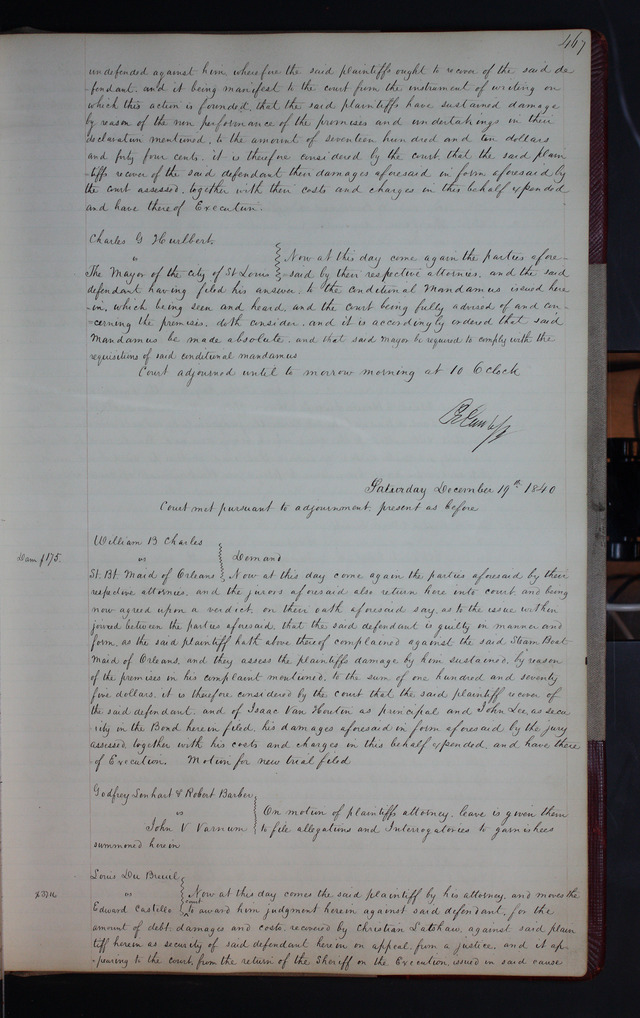 467
undefended against him wherefore the said plaintiffs ought to recover of the said de
-fendant. and it being manifest to the court from the instrument of writing on
which this action is founded, that the said plaintiffs have sustained damage
by reason of the non performance of the promises and undertakings in their
declaration mentioned, to the amount of seventeen hundred and ten dollars
and forty four cents. it is therefore considered by the court, that the said plain
-tiffs recover of the said defendant their damages aforesaid in form aforesaid by
the court assessed, together with their costs and charges in this behalf expended
and have thereof Execution.
Charles G Hurlbert
vs
Now at this day come again the parties afore-
The Mayor of the city of St Louis
-said by their respective attornies, and the said
defendant having filed his answer to the conditional Mandamus issued here
-in, which being seen and heard, and the court being fully advised of and con-
-cerning the premises, doth consider, and it is accordingly ordered that said
Mandamus be made absolute, and that said Mayor be required to comply with the
requisitions of said conditional mandamus
Court adjourned until to morrow morning at 10 O'clock
Saturday December 19th 1840
Court met pursuant to adjournment, present as before
William B Charles
vs
Demand
Dam $175.
St. Bt. Maid of Orleans
Now at this day come again the parties aforesaid by their
respective attornies, and the jurors aforesaid also return here into court, and being
now agreed upon a verdict, on their oath aforesaid say, as to the issue within
joined between the parties aforesaid, that the said defendant is guilty in manner and
form, as the said plaintiff hath above thereof complained against the said Steam Boat
Maid of Orleans, and they assess the plaintiffs damage by him sustained, by reason
of the premises in his complaint mentioned, to the sum of one hundred and seventy
five dollars, it is therefore considered by the court that the said plaintiff recover of
the said defendant, and of Isaac Van Houten as principal and John Lee, as secu
-rity in the Bond herein filed, his damages aforesaid in form aforesaid by the jury
assessed, together with his costs and charges in this behalf expended, and have there
-of Execution. Motion for new trial filed
Godfrey & Robert Barber
vs
On motion of plaintiffs attorney, leave is given them
John V Varnum
to file allegations and Interrogatories to garnishees
summoned herein
Louis Du Breuil
vs
Now at this day comes the said plaintiff by his attorney, and moves the
court
Edward Castello
to award him judgment herein against said defendant, for the
amount of debt, damages and costs, recovered by Christian Latshaw, against said plain
tiff herein as security of said defendant herein on appeal, from a justice, and it ap-
-pearing to the court, from the return of the Sheriff on the Execution, issued in said cause